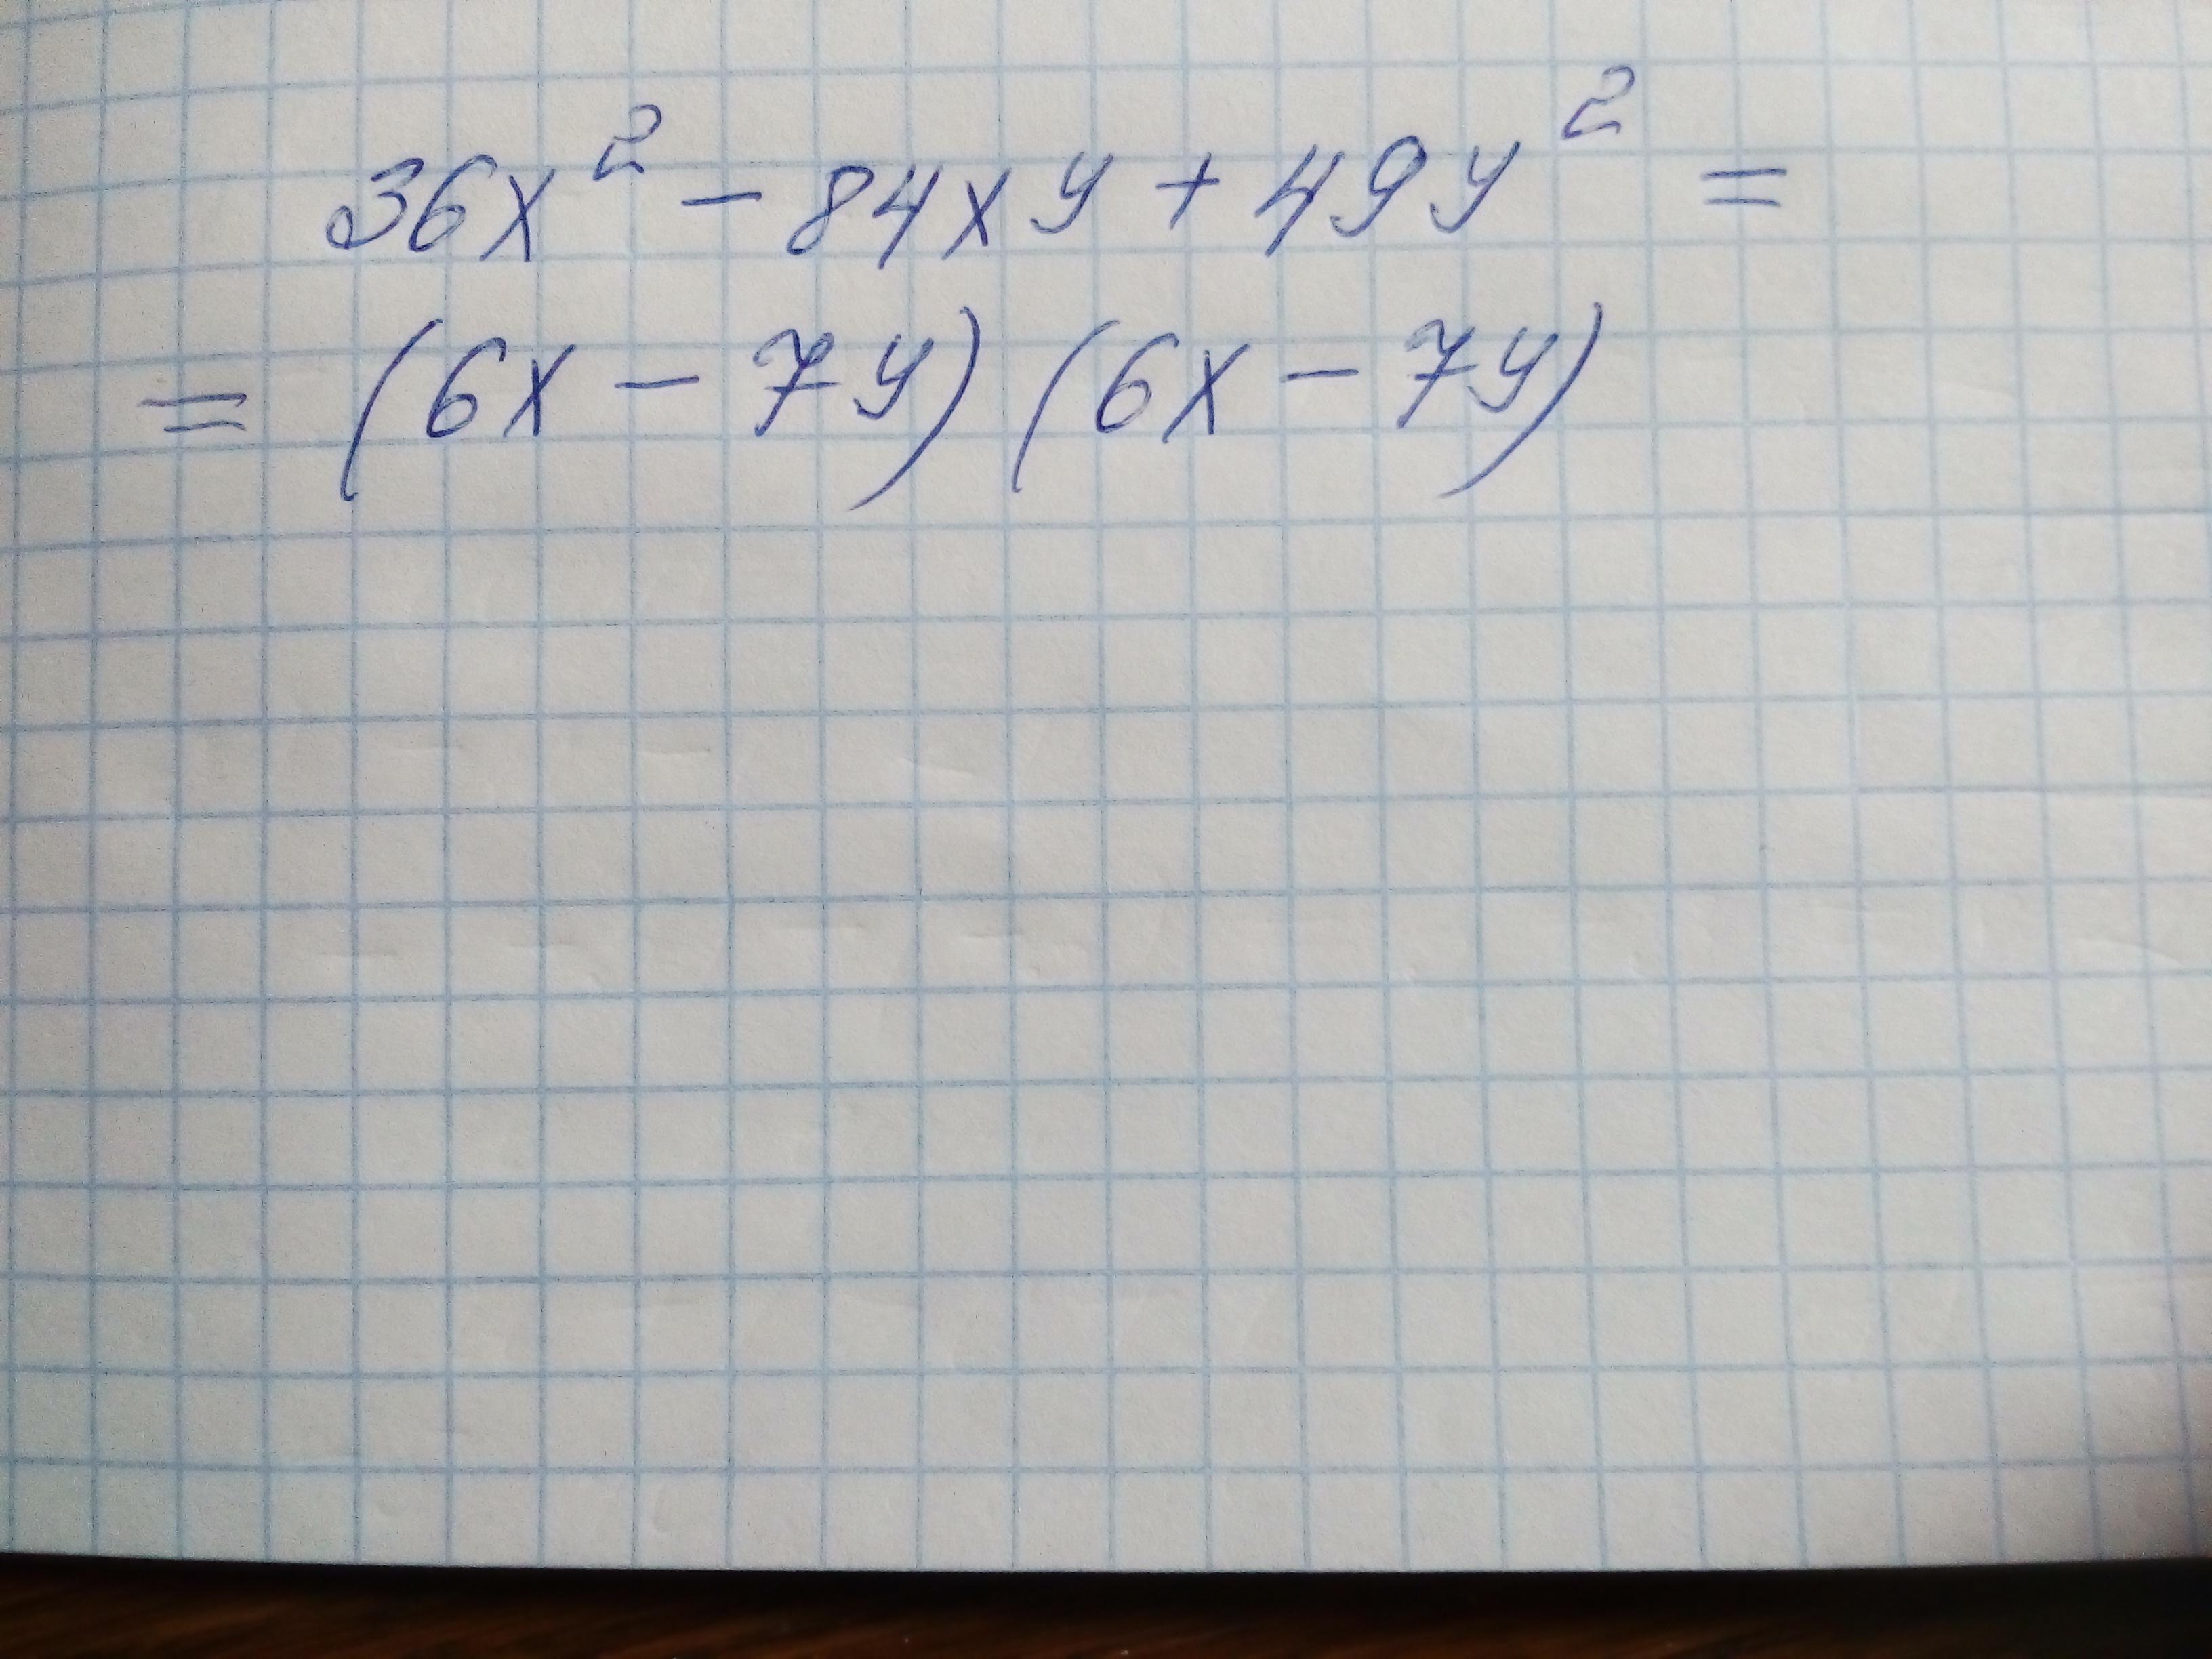 36x² - 84xy + 49y² =
= (6x - 7y)(6x - 7y)